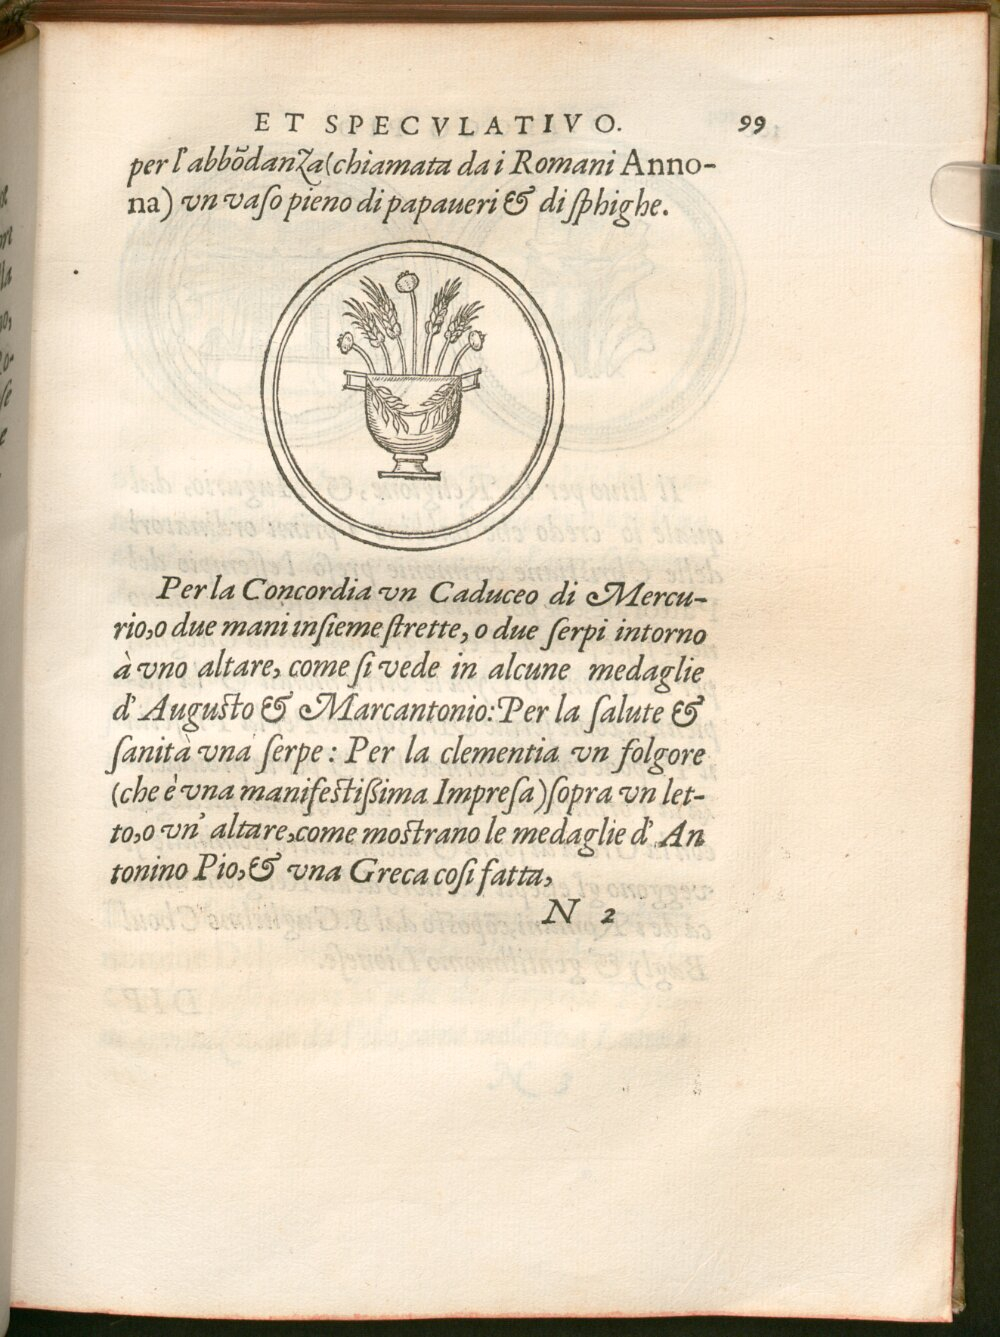 ET SPECVLATIVO. 99
per l'abbōdanza (chiamata da i Romani Anno-
na) vn vaso pieno di papaueri & di sphighe.
Per la Concordia vn Caduceo di Mercu-
rio, o due mani insieme strette, o due serpi intorno
à vno altare, come si vede in alcune medaglie
d'Augusto & Marcantonio: Per la salute &
sanità vna serpe: Per la clementia vn folgore
(che è vna manifestissima Impresa) sopra vn let-
to, o vn' altare, come mostrano le medaglie d'An
tonino Pio, & vna Greca cosi fatta,
N 2